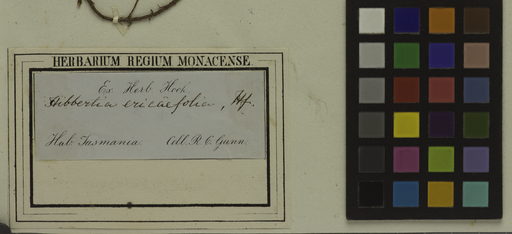 HERBARIUM REGIUM MONACENSE.
Ex Herb Hook
Hibbertia ericaefolia, Hf.
Hab. Tasmania. Coll. R. C. Gunn.